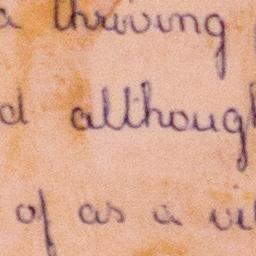 a thriving
d although
of as a vil